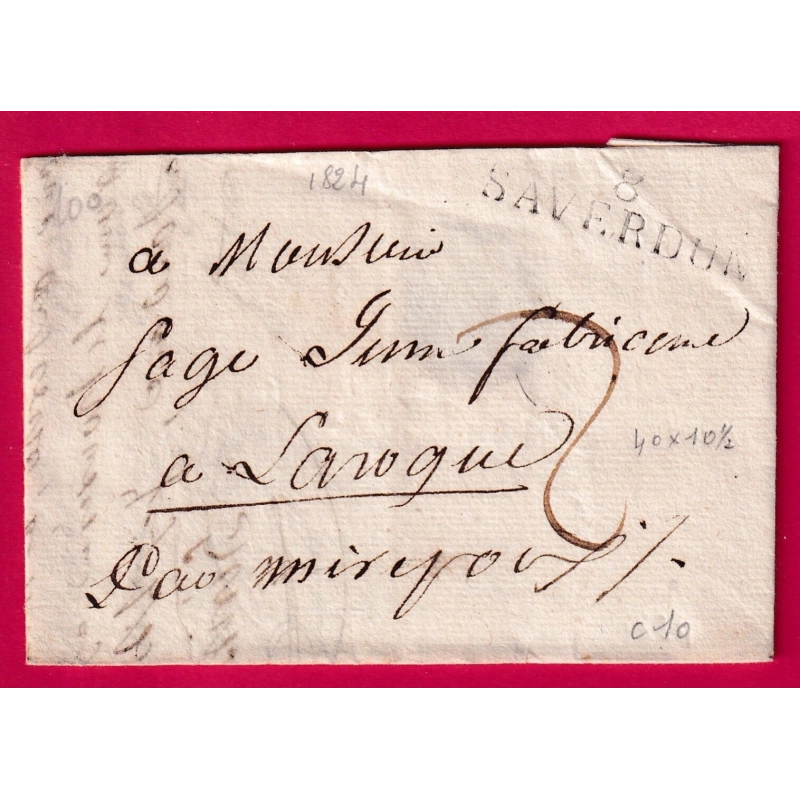 1824
8
SAVERDUN
200
a Monsieur
Sage Jeune fabricant
3
a Laroque
40x10½
Par mirepoix /.
C-10